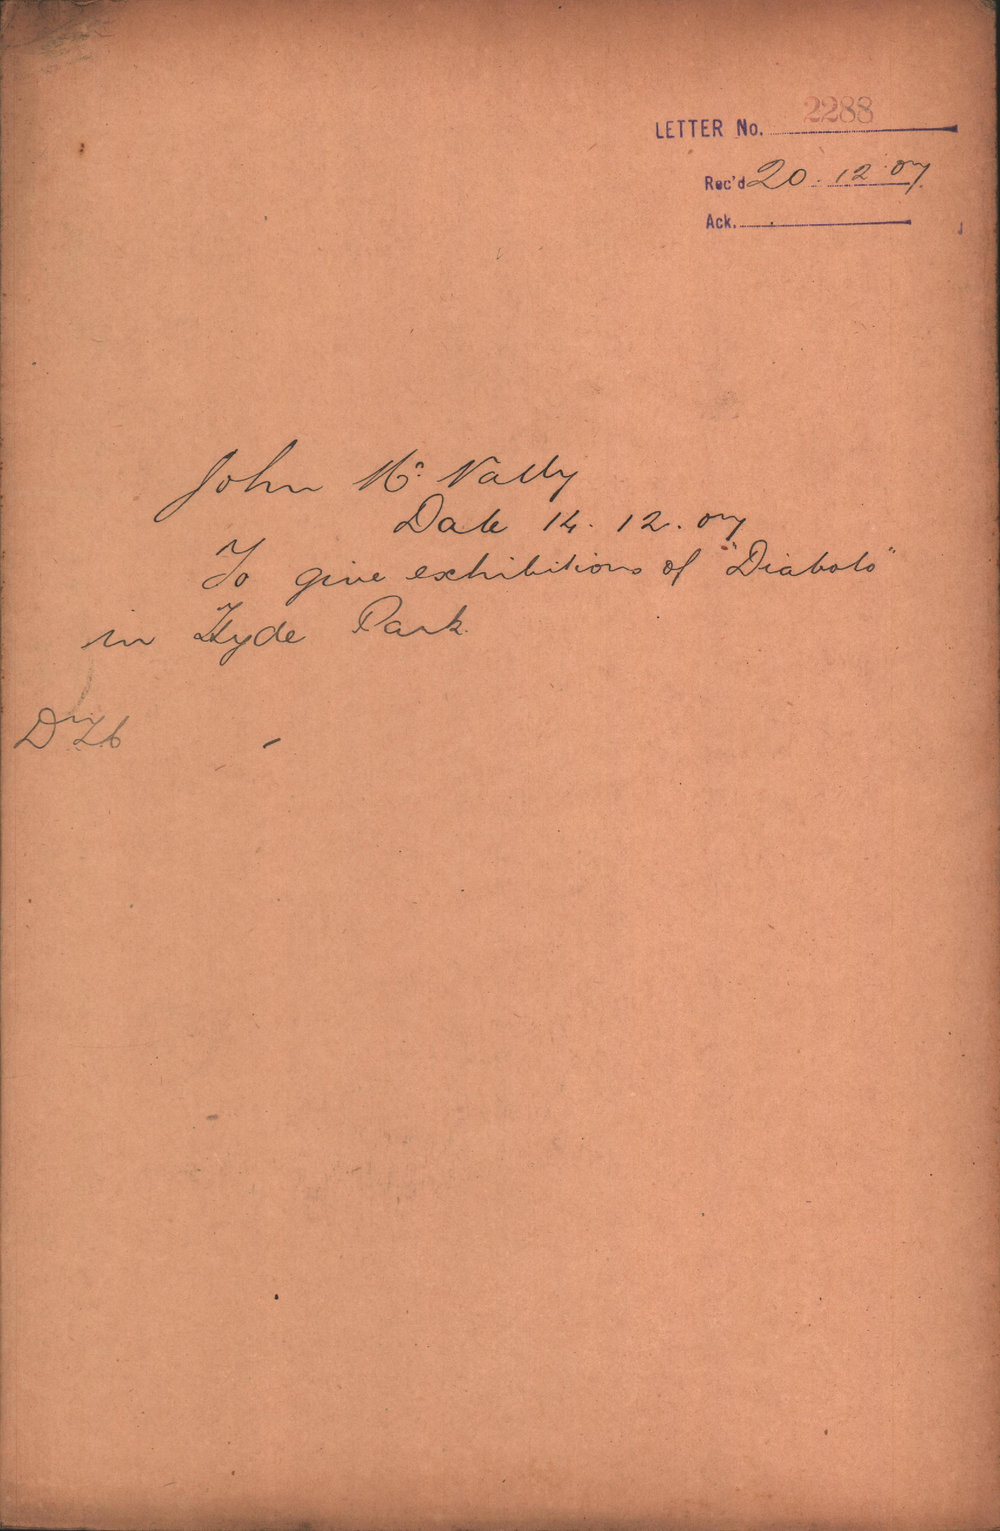 LETTER No. 2288
Rec'd 20.12.07
Ack.
John McNally
Date 14.12.07
To give exhibitions of "Diabolo"
in Hyde Park.